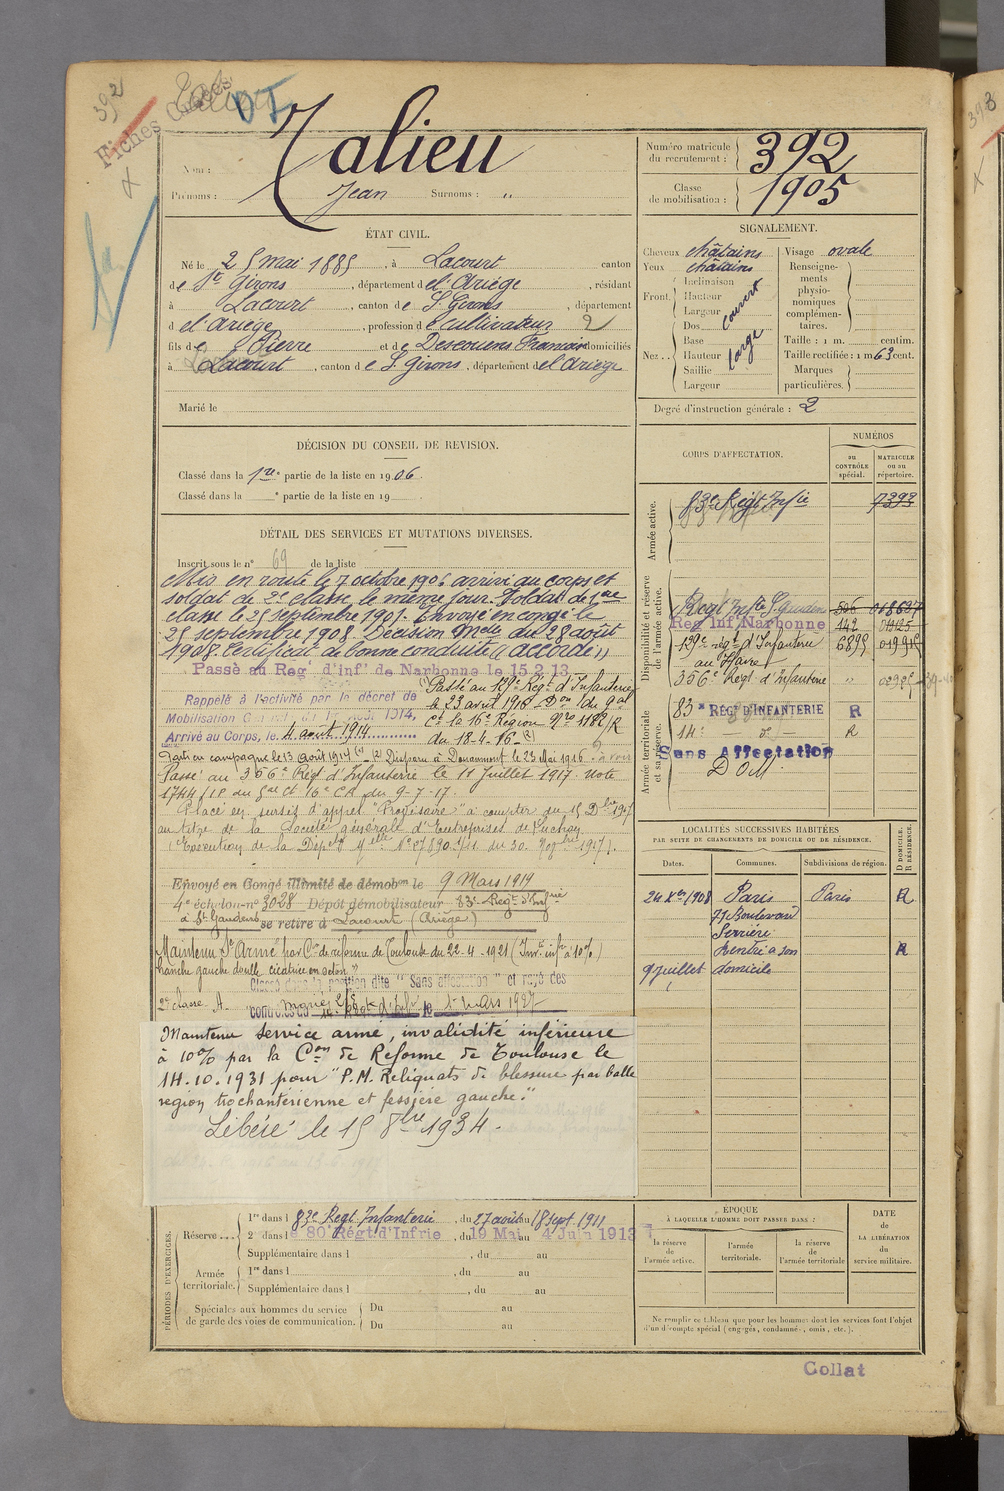 392
Fiches Croisées
VI
Nom : Talieu
Prénoms : Jean Surnoms : "
Numéro matricule du recrutement : 392
Classe de mobilisation : 1905
ÉTAT CIVIL.
Né le 25 mai 1885, à Lacourt canton
de St Girons, département de l'Ariège, résidant
à Lacourt, canton de St Girons, département
de l'Ariège, profession de cultivateur 2
fils de Pierre et de Descouens Francoise domiciliés
à Lacourt, canton de St Girons, département de l'Ariège
Marié le
SIGNALEMENT.
Cheveux châtains Visage ovale
Yeux châtains Renseignements physionomiques complémentaires.
Front. Inclinaison
Hauteur
Largeur
couvert
Nez... Dos
Base
Hauteur
Saillie
Largeur
large
Taille : 1 m. centim.
Taille rectifiée : 1 m 63 cent.
Marques particulières.
Degré d'instruction générale : 2
DÉCISION DU CONSEIL DE REVISION.
Classé dans la 1re partie de la liste en 1906.
Classé dans la e partie de la liste en 19
DÉTAIL DES SERVICES ET MUTATIONS DIVERSES.
Inscrit sous le n° 69 de la liste
Mis en route le 7 octobre 1906 arrivé au corps et
soldat de 2e classe le même jour. Soldat de 1re
classe le 25 septembre 1907. Envoyé en congé le
25 septembre 1908. Décision Mlle du 28 août
1908. Certificat de bonne conduite "accordé"
Passé au Regt d'Inft de Narbonne le 15.2.13
Rappelé à l'activité par le décret de
Mobilisation Général du 1er Août 1914,
Arrivé au Corps, le 4 août 1914
(1) Passé au 129e Régt d'Infanterie
le 23 avril 1916 Don du Gal
Ct la 16e Région No 1182/R
du 18-4-16 (2)
Parti en campagne le 13 août 1914 (1) (2) Disparu à Douaumont le 23 Mai 1916
Passé au 356e Régt d'Infanterie le 11 Juillet 1917. Note
1744/1P du Gal Ct 16e CA du 9-7-17.
Placé en sursis d'appel "Provisoire" à compter du 15 Dbre 1917
au titre de la Société générale d'Entreprises de Luchon
(Exécution de la Dépêche Mlle No 27890 du 30 Novbre 1917).
Envoyé en Congé illimité de démobon le 9 Mars 1919
4e échelon n° 3028 Dépôt démobilisateur 83e Regt d'Infrie
à St Gaudens se retire à Lacourt (Ariège)
Maintenu Sce Armé par Con de réforme de Toulouse du 22-4-1921 (Inv. inf. à 10%)
hanche gauche
Classé dans la position dite "Sans affectation" et rayé des
contrôles du le 1er Mars 1927
Maintenu service armé, invalidité inférieure
à 10% par la Con de Réforme de Toulouse le
14.10.1931 pour "P.M. Reliquats de blessure par balle
region trochantérienne et fessière gauche."
Libéré le 15 8bre 1934.
CORPS D'AFFECTATION.
NUMÉROS
au CONTRÔLE spécial.
MATRICULE ou au répertoire.
Armée active.
83e Régt Infie 7393
Disponibilité et réserve de l'armée active.
Regt Infie St Gaudens 506 018637
Reg Inf Narbonne 142 01925
129e régt d'Infanterie 6895 01991
au Havre
356e Regt d'Infanterie "
Armée territoriale et sa réserve.
83e RÉGT D'INFANTERIE R
14e R
Sans Affectation
DOM
LOCALITÉS SUCCESSIVES HABITÉES
PAR SUITE DE CHANGEMENTS DE DOMICILE OU DE RÉSIDENCE.
Dates. Communes. Subdivisions de région. D DOMICILE. R RÉSIDENCE.
24 Xbre 1908 Paris Paris R
77 Boulevard
Serrurier
Rentré à son R
9 juillet domicile
PÉRIODES D'EXERCICES.
Réserve... 1re dans l 83e Regt Infanterie, du 27 août au 18 sept. 1911
2e dans l e 80e Régt d'Infrie, du 19 Mai au 4 Juin 1913
Supplémentaire dans l , du au
Armée territoriale. 1re dans l , du au
Supplémentaire dans l , du au
Spéciales aux hommes du service de garde des voies de communication. Du au
Du au
ÉPOQUE
À LAQUELLE L'HOMME DOIT PASSER DANS :
la réserve de l'armée active.
l'armée territoriale.
la réserve de l'armée territoriale
DATE
DE LA LIBÉRATION du service militaire.
Ne remplir ce tableau que pour les hommes dont les services font l'objet d'un décompte spécial (engagés, condamnés, omis, etc.).
Collat
393